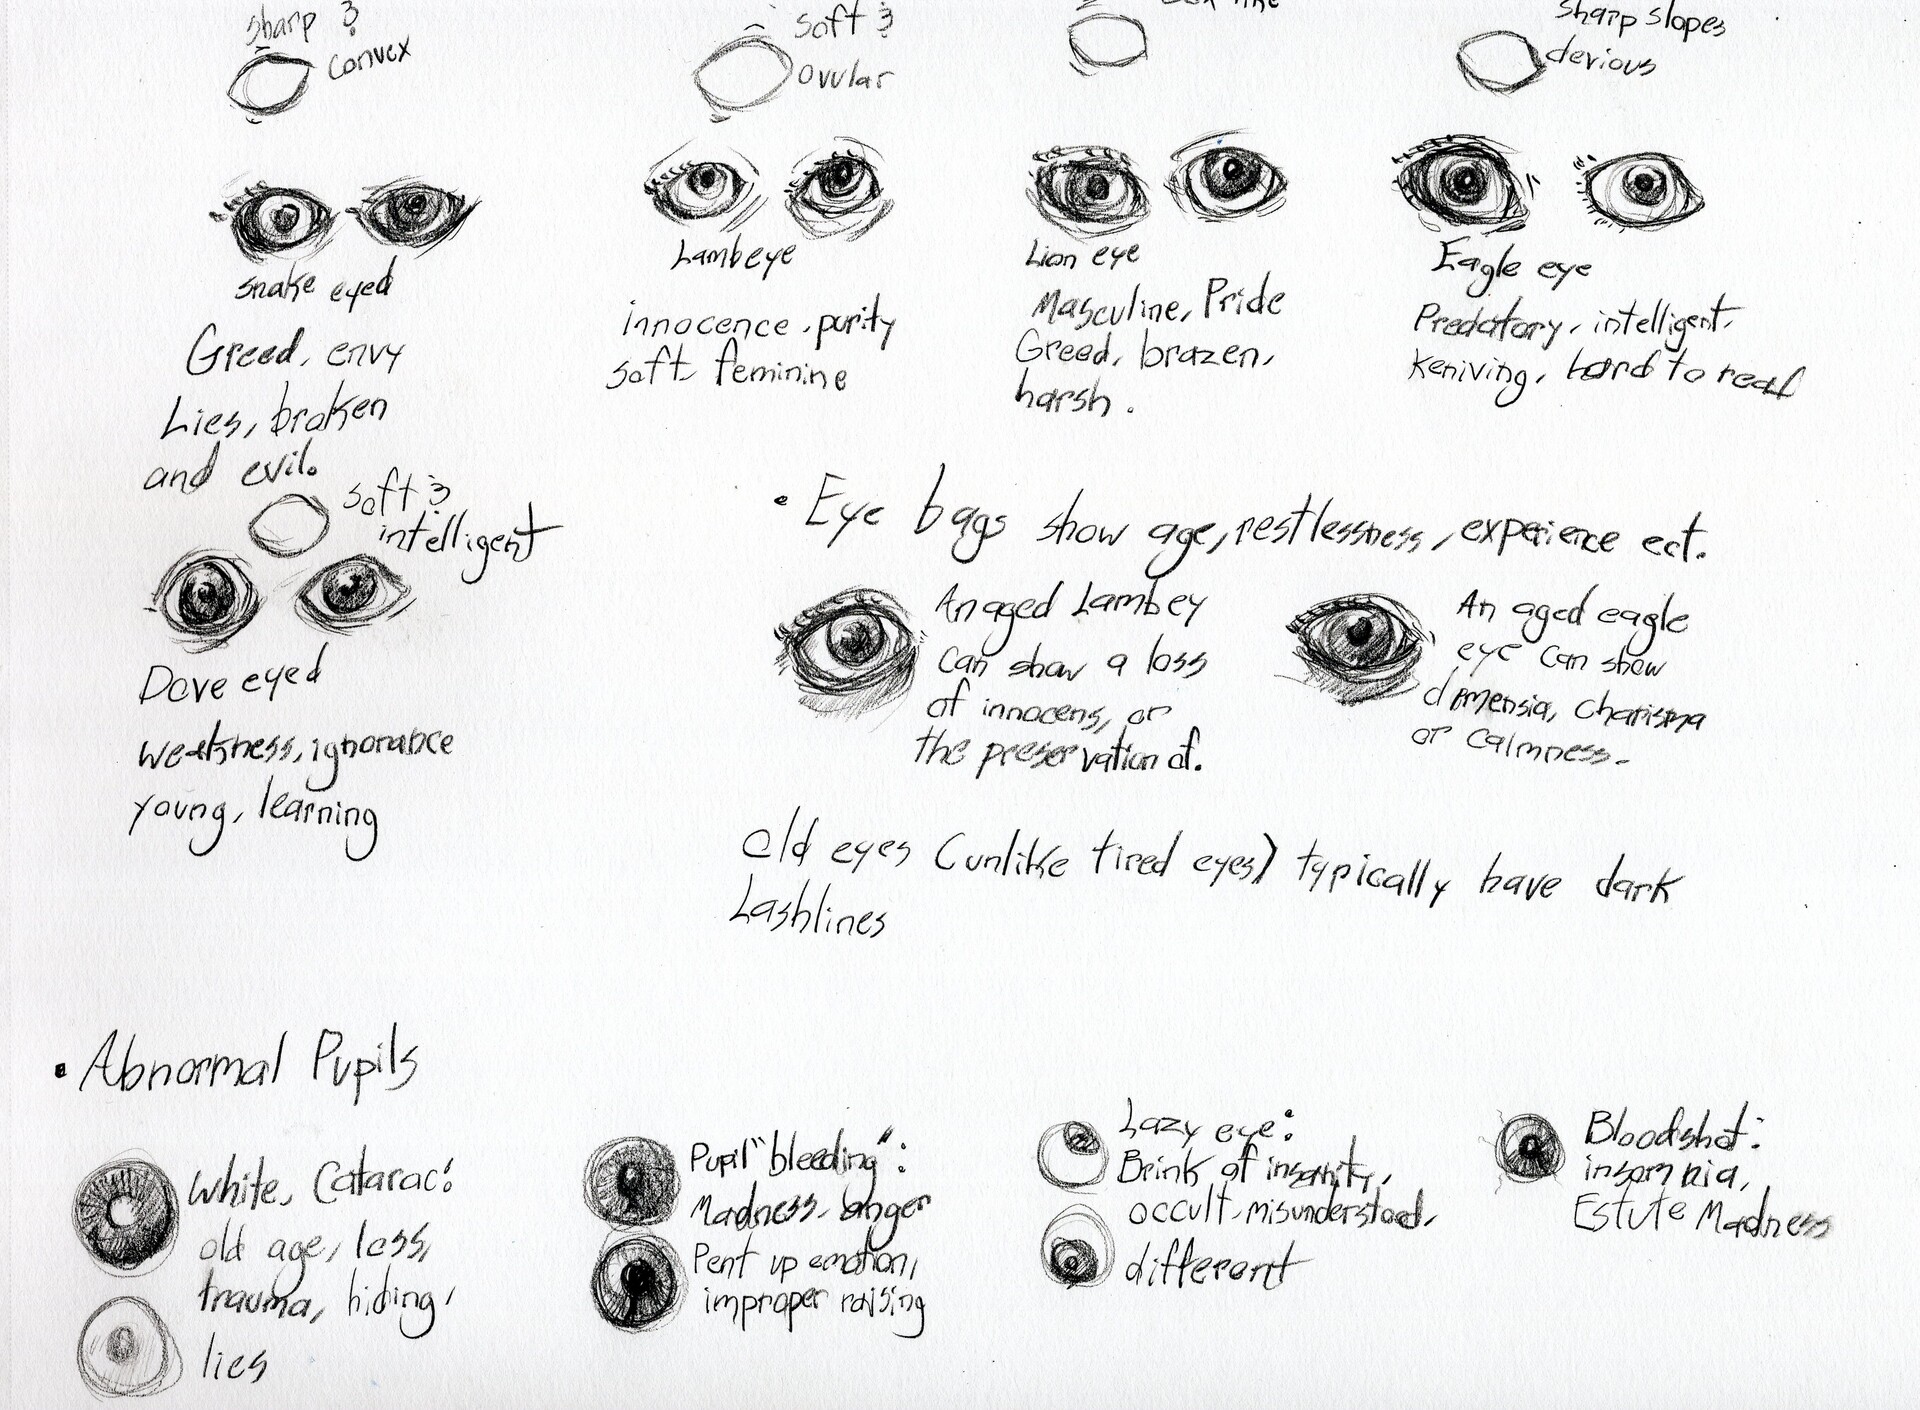 sharp &
convex
soft &
ovular
sharp slopes
devious
snake eyed
Greed, envy
Lies, broken
and evil.
Lambeye
innocence, purity
soft, feminine
Lion eye
Masculine, Pride
Greed, brazen,
harsh.
Eagle eye
Predatory, intelligent,
Keniving, hard to read
soft &
intelligent
Dove eyed
weakness, ignorance
young, learning
• Eye bags show age, restlessness, experience ect.
An aged Lambey
can show a loss
of innocens, or
the preservation of.
An aged eagle
eye can show
dimensia, charisma
or calmness.
Old eyes (unlike tired eyes) typically have dark
Lashlines
• Abnormal Pupils
White, Catarac:
old age, loss,
trauma, hiding,
lies
Pupil "bleeding":
Madness, anger
Pent up emotion,
improper raising
Lazy eye:
Brink of insanity,
occult, misunderstood,
different
Bloodshot:
insomnia,
Estute Madness